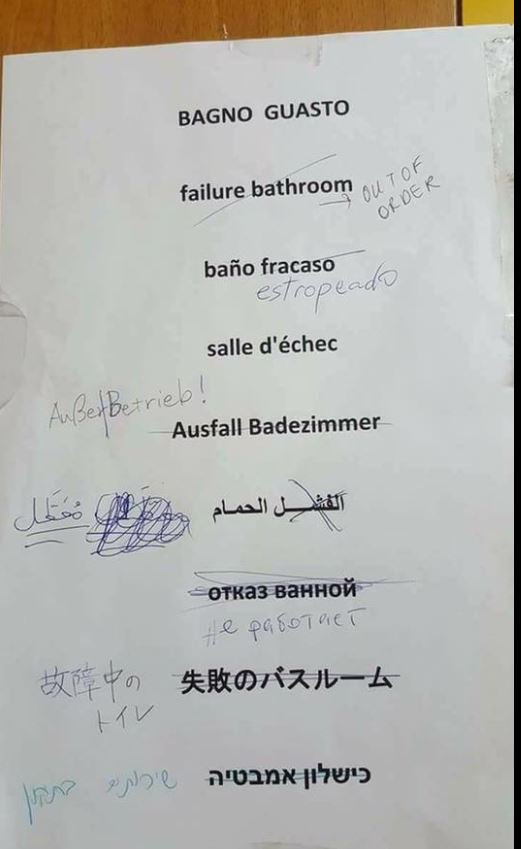 BAGNO GUASTO
failure bathroom → OUT OF
ORDER
baño fracaso
estropeado
salle d'échec
Außer Betrieb!
Ausfall Badezimmer
الفشــل الحمام
معطل
отказ ванной
не работает
失敗のバスルーム
故障中の
トイレ
כישלון אמבטיה
שירותים